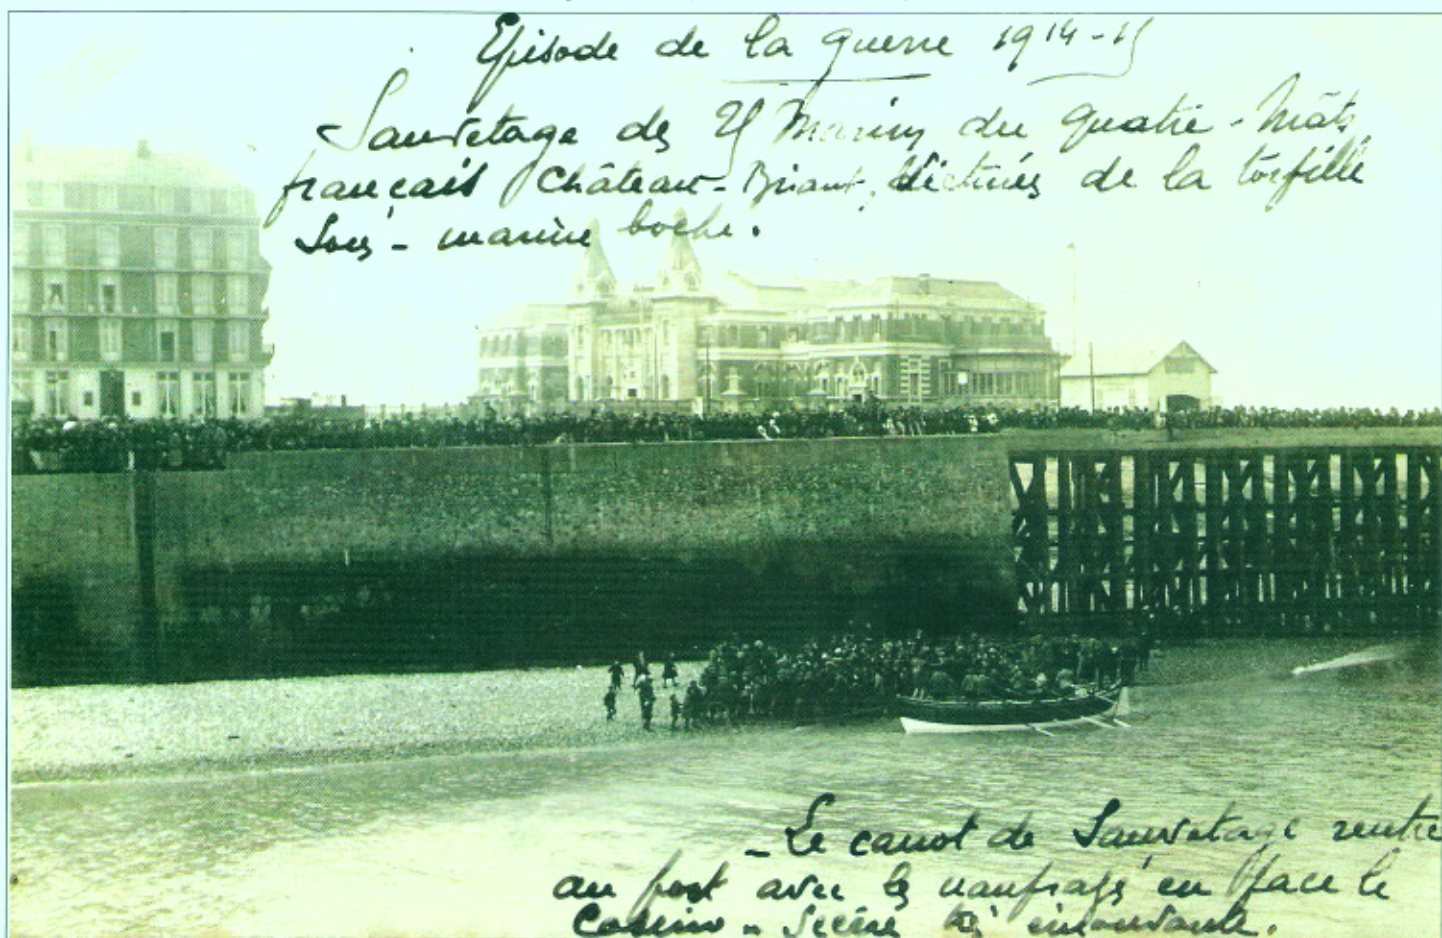 Episode de la guerre 1914-15
Sauvetage des 25 Marins du quatre-Mâts
français Château-Briant, victimes de la torpille
sous-marine boche.
- Le canot de Sauvetage rentre
au port avec les naufragés en face le
Casino - Scène très émouvante.